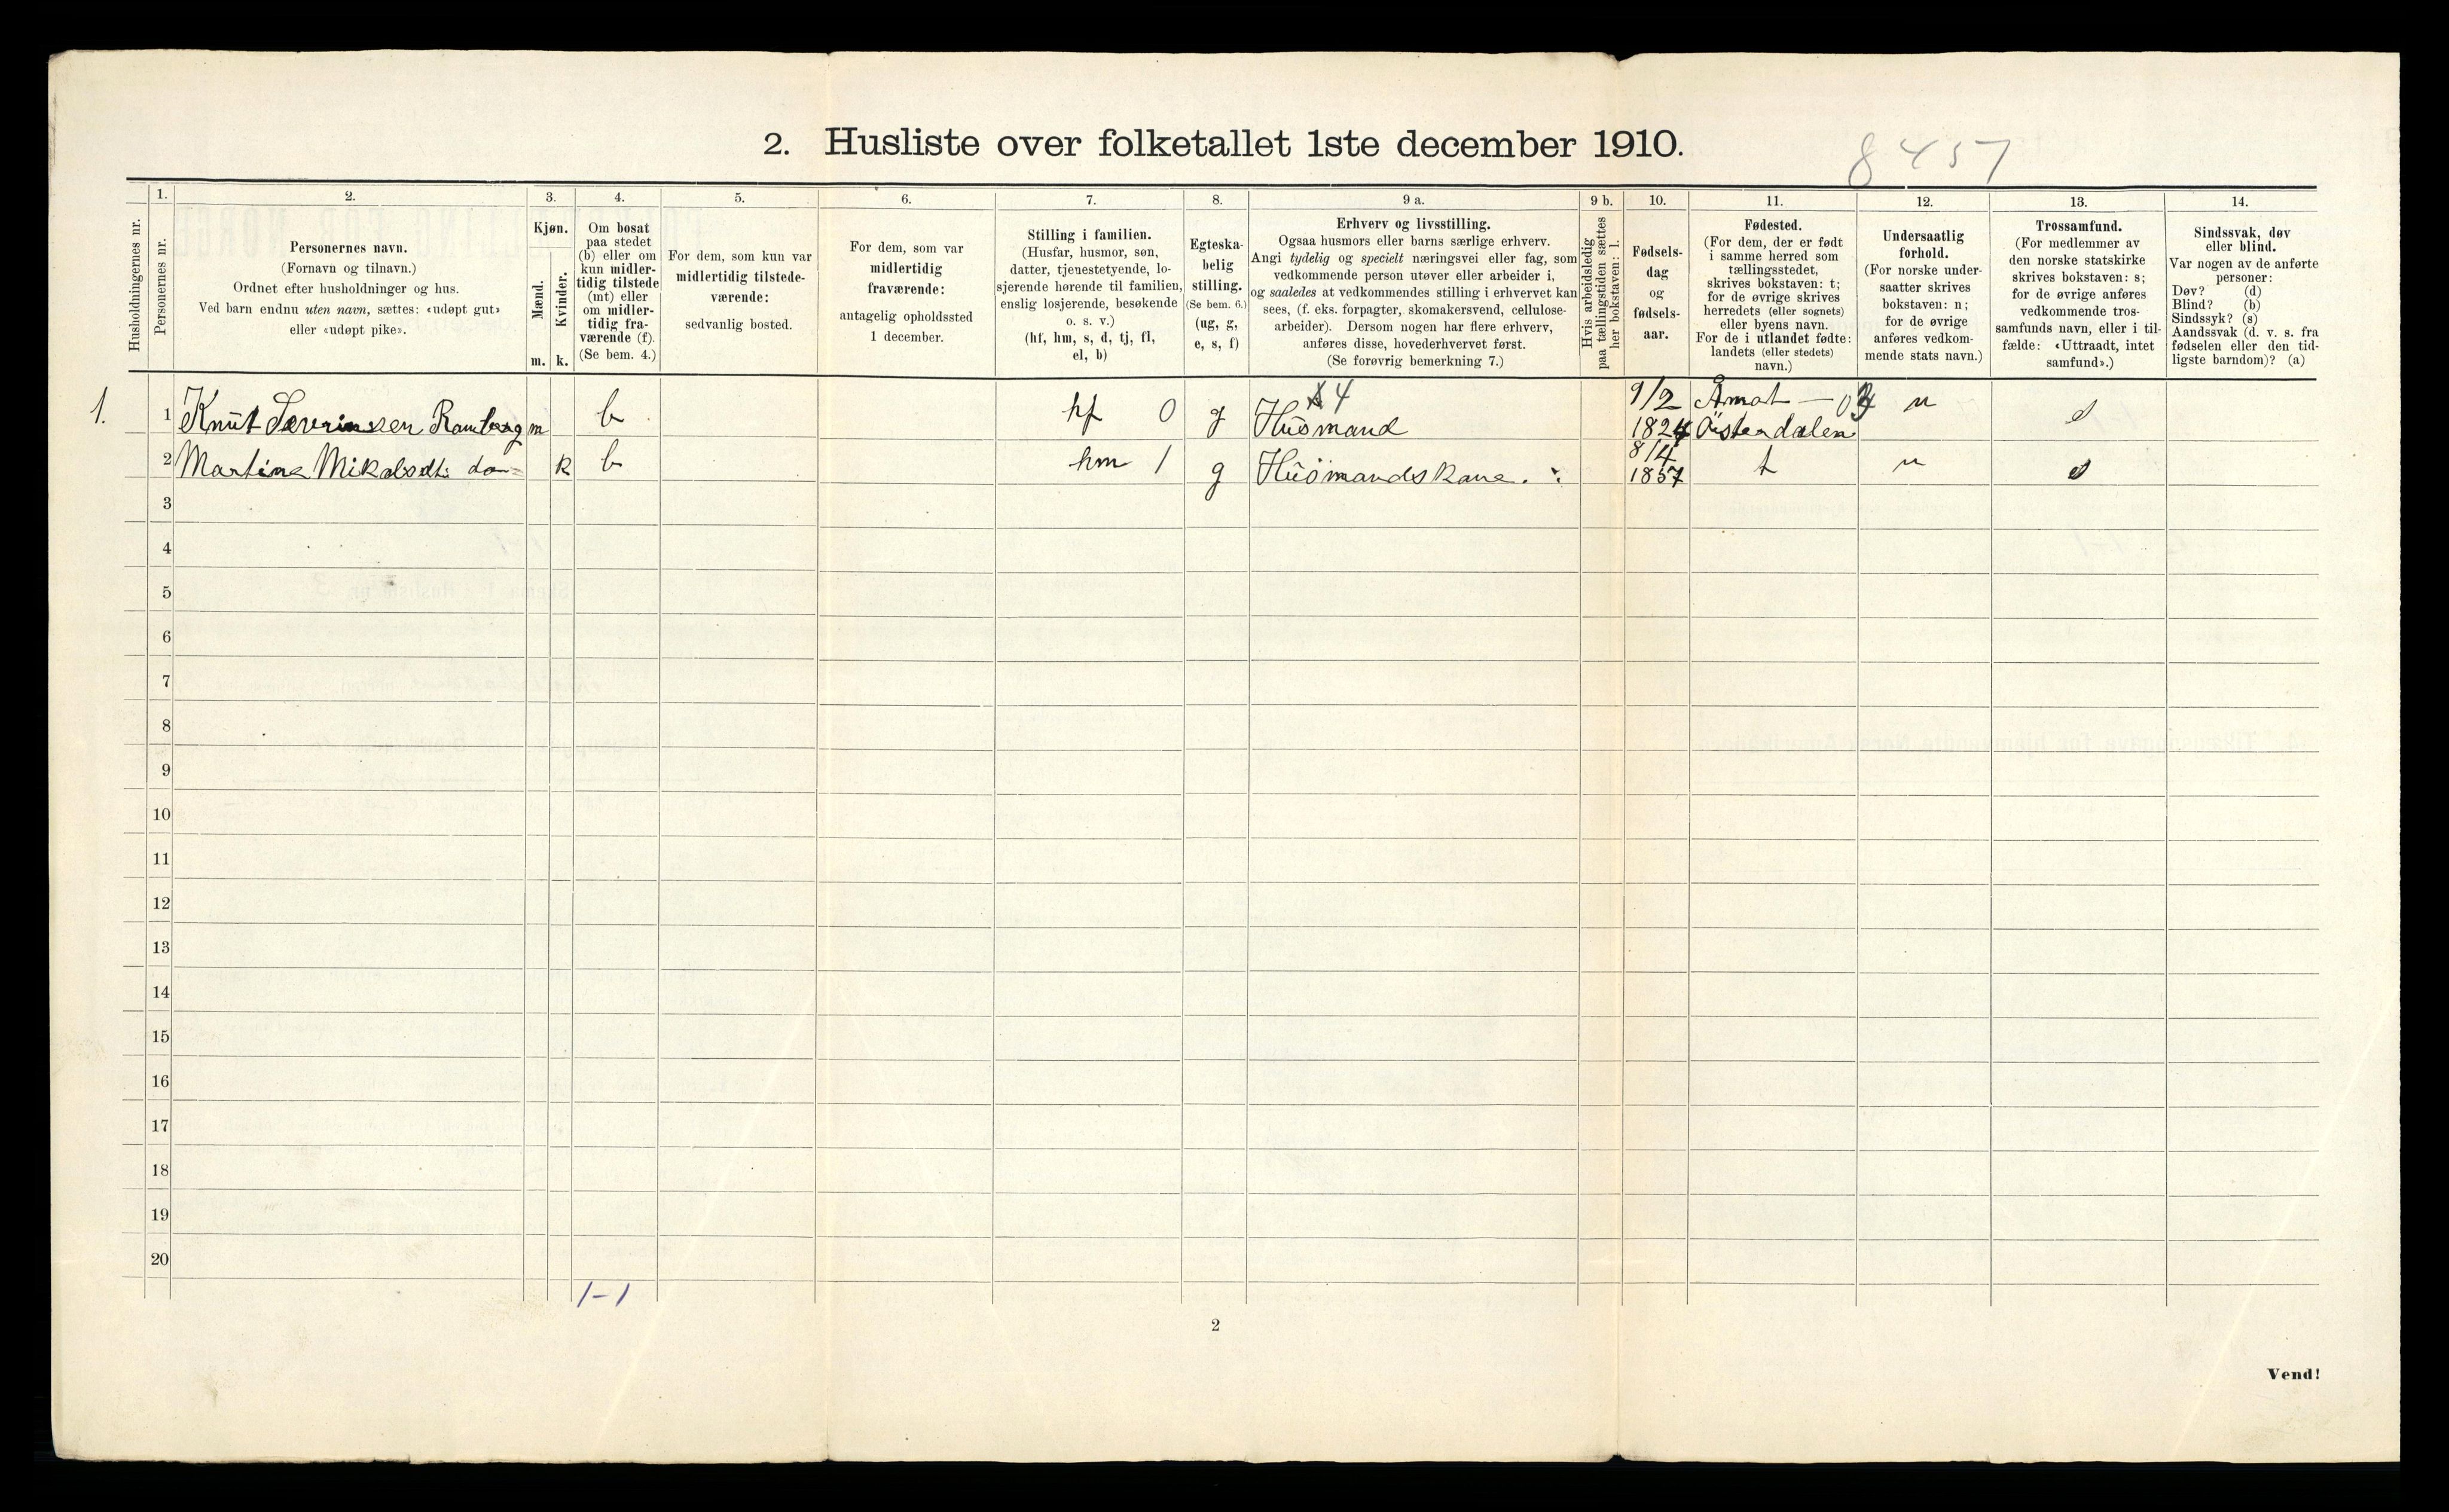 2. Husliste over folketallet 1ste december 1910.
8457
Husholdningernes nr.
1.
Personernes nr.
2.
Personernes navn.
(Fornavn og tilnavn.)
Ordnet efter husholdninger og hus.
Ved barn endnu uten navn, sættes: «udøpt gut»
eller «udøpt pike».
3.
Kjøn.
Mænd.
Kvinder.
m. k.
4.
Om bosat
paa stedet
(b) eller om
kun midler-
tidig tilstede
(mt) eller
om midler-
tidig fra-
værende (f).
(Se bem. 4.)
5.
For dem, som kun var
midlertidig tilstede-
værende:
sedvanlig bosted.
6.
For dem, som var
midlertidig
fraværende:
antagelig opholdssted
1 december.
7.
Stilling i familien.
(Husfar, husmor, søn,
datter, tjenestetyende, lo-
sjerende hørende til familien,
enslig losjerende, besøkende
o. s. v.)
(hf, hm, s, d, tj, fl,
el, b)
8.
Egteska-
belig
stilling.
(Se bem. 6.)
(ug, g,
e, s, f)
9 a.
Erhverv og livsstilling.
Ogsaa husmors eller barns særlige erhverv.
Angi tydelig og specielt næringsvei eller fag, som
vedkommende person utøver eller arbeider i,
og saaledes at vedkommendes stilling i erhvervet kan
sees, (f. eks. forpagter, skomakersvend, cellulose-
arbeider). Dersom nogen har flere erhverv,
anføres disse, hovederhvervet først.
(Se forøvrig bemerkning 7.)
9 b.
Hvis arbeidsledig
paa tællingstiden sættes
her bokstaven: l.
10.
Fødsels-
dag
og
fødsels-
aar.
11.
Fødested.
(For dem, der er født
i samme herred som
tællingsstedet,
skrives bokstaven: t;
for de øvrige skrives
herredets (eller sognets)
eller byens navn.
For de i utlandet fødte:
landets (eller stedets)
navn.)
12.
Undersaatlig
forhold.
(For norske under-
saatter skrives
bokstaven: n;
for de øvrige
anføres vedkom-
mende stats navn.)
13.
Trossamfund.
(For medlemmer av
den norske statskirke
skrives bokstaven: s;
for de øvrige anføres
vedkommende tros-
samfunds navn, eller i til-
fælde: «Uttraadt, intet
samfund».)
14.
Sindssvak, døv
eller blind.
Var nogen av de anførte
personer:
Døv? (d)
Blind? (b)
Sindssyk? (s)
Aandssvak (d. v. s. fra
fødselen eller den tid-
ligste barndom)? (a)
1. 1 Knut Severinsen Ramberg m b hf 0 g Husmand 9/2 1824 Åmot Østerdalen n s
2 Martine Mikalsdt. do k b hm 1 g Husmandskone. 8/4 1857 t n s
3
4
5
6
7
8
9
10
11
12
13
14
15
16
17
18
19
20
1-1
2
Vend!